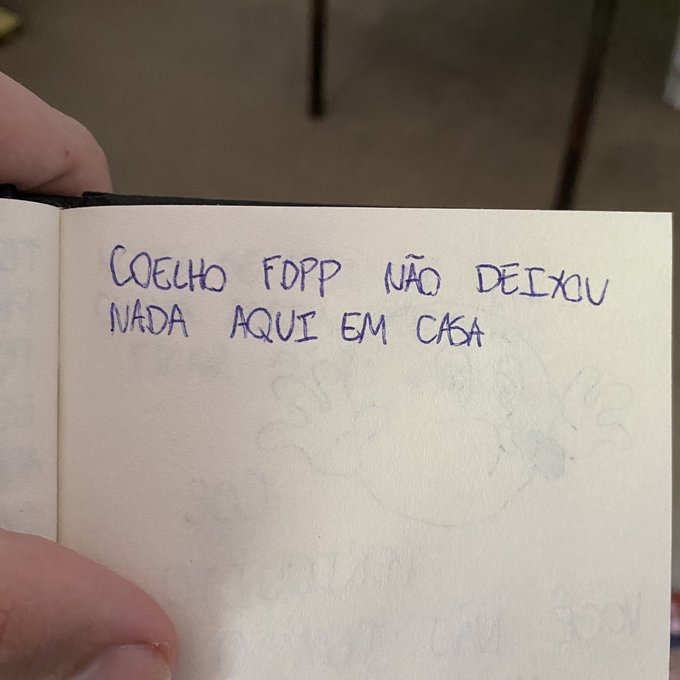 COELHO FDPP NÃO DEIXOU
NADA AQUI EM CASA
VOCÊ NÃO